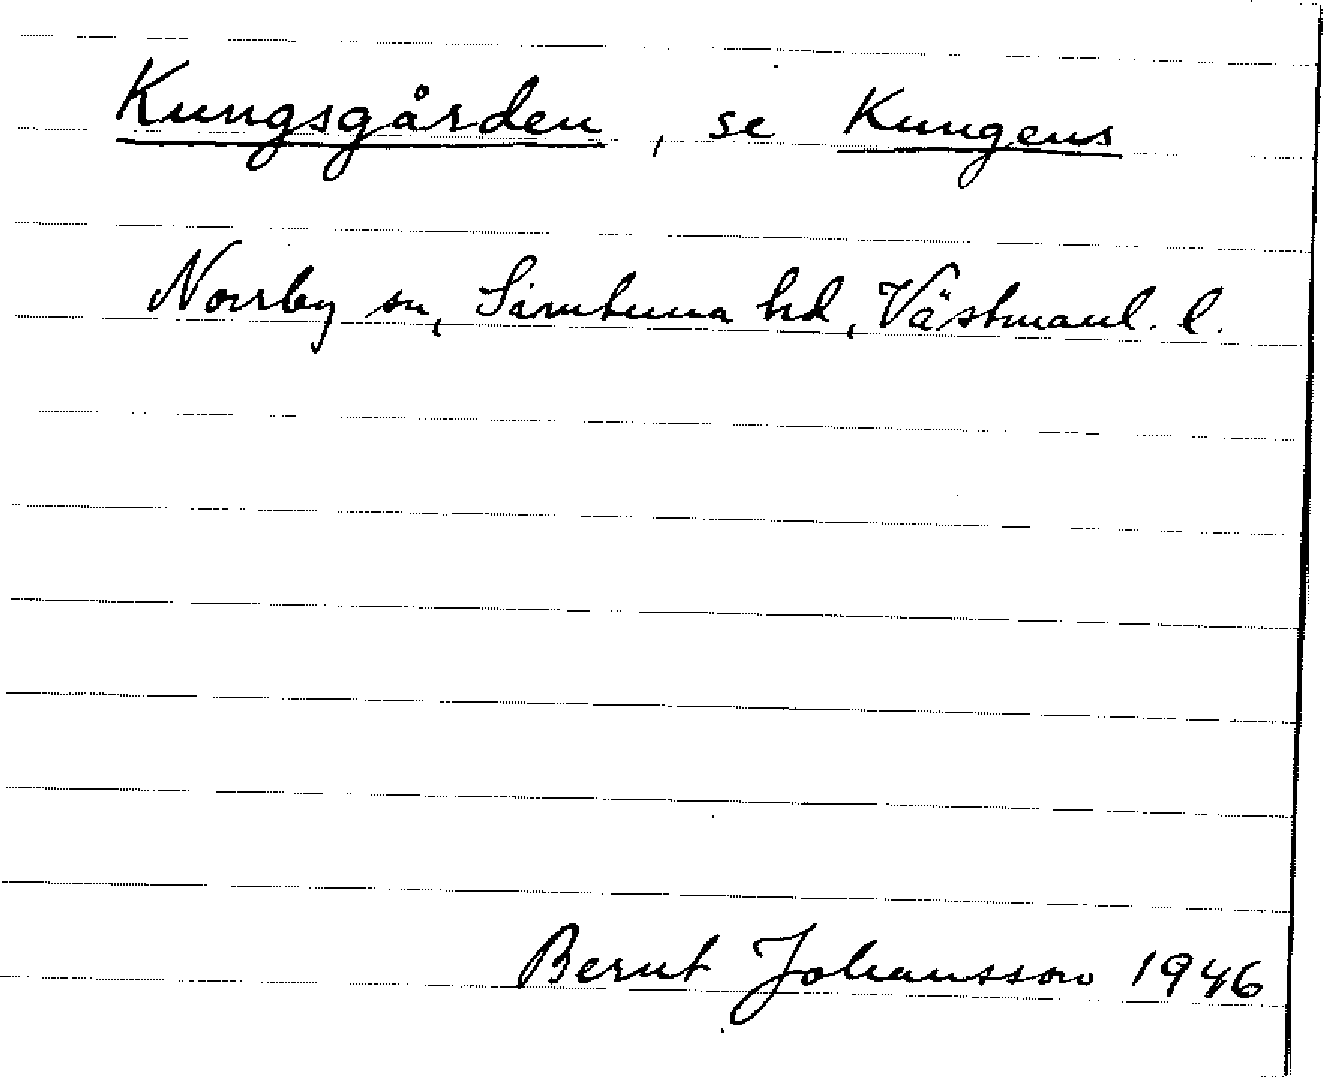 Kungsgården, se Kungens
Norrby sn, Simtuna hd, Västmanl. l.
Bernt Johansson 1946